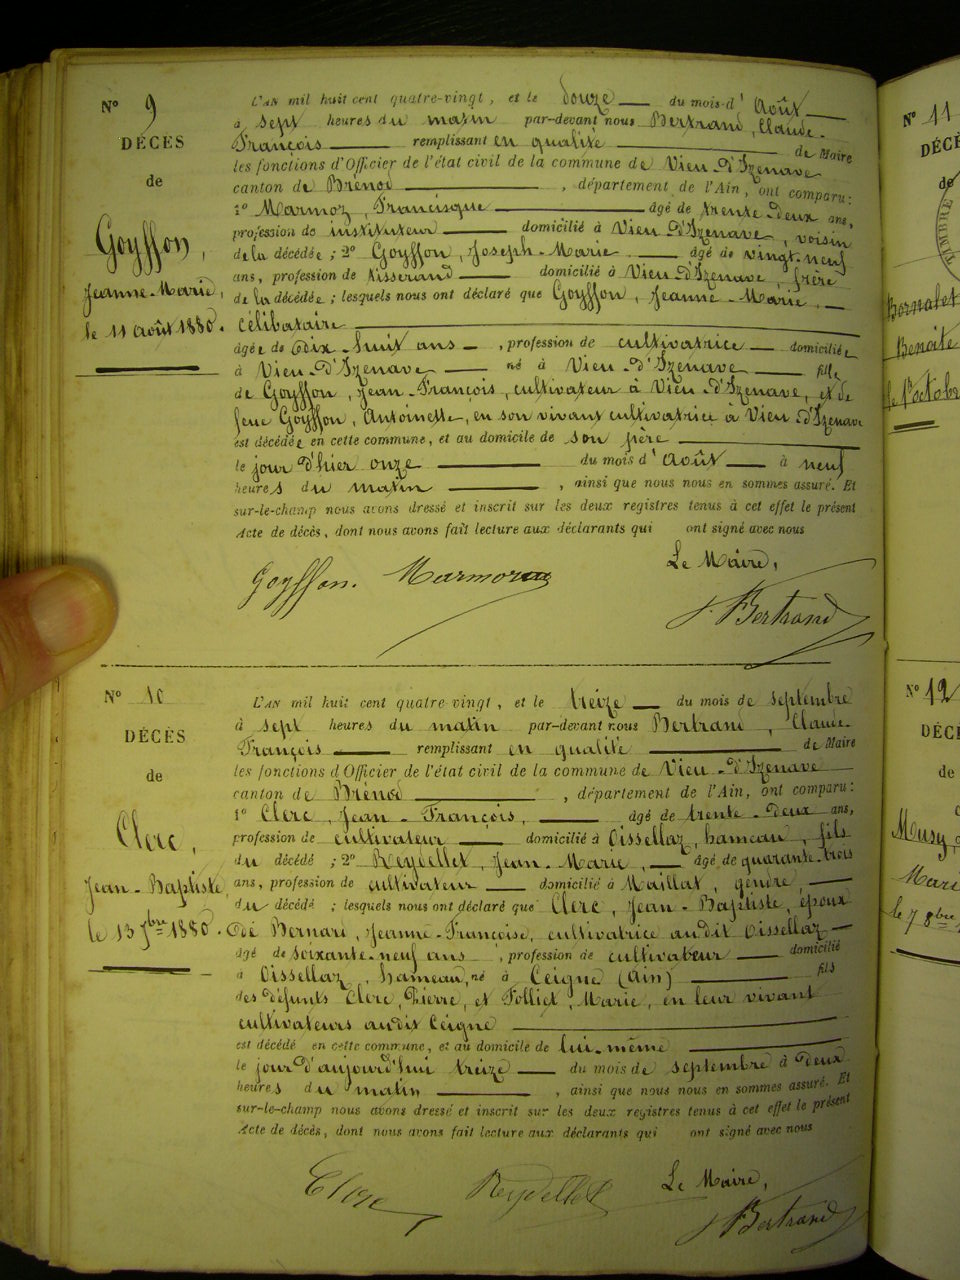 N° 9
DÉCÈS
de
Goyffon,
Jeanne-Marie,
le 11 août 1880.
L'AN mil huit cent quatre-vingt, et le douze du mois d'Août
à sept heures du matin par-devant nous Bertrand, Claude-
François remplissant en qualité de Maire
les fonctions d'Officier de l'état civil de la commune de Vieu-d'Izenave
canton de Brénod, département de l'Ain, ont comparu:
1° Marmoz, Francisque âgé de trente-deux ans,
profession de instituteur domicilié à Vieu-d'Izenave, voisin
de la décédée; 2° Goyffon, Joseph-Marie âgé de vingt-neuf
ans, profession de tisserand domicilié à Vieu-d'Izenave, frère
de la décédée; lesquels nous ont déclaré que Goyffon, Jeanne-Marie,
célibataire
âgée de dix-huit ans, profession de cultivatrice domiciliée
à Vieu-d'Izenave né à Vieu-d'Izenave fille
de Goyffon, Jean-François, cultivateur à Vieu-d'Izenave, et de
feue Goyffon, Antoinette, en son vivant cultivatrice à Vieu-d'Izenave
est décédée en cette commune, et au domicile de son père
le jour d'hier onze du mois d'Août à neuf
heures du matin, ainsi que nous nous en sommes assuré. Et
sur-le-champ nous avons dressé et inscrit sur les deux registres tenus à cet effet le présent
Acte de décès, dont nous avons fait lecture aux déclarants qui ont signé avec nous
Le Maire,
Goyffon. Marmoz
Bertrand
N° 10
DÉCÈS
de
Clerc,
Jean-Baptiste
le 13 7bre 1880.
L'AN mil huit cent quatre vingt, et le treize du mois de septembre
à sept heures du matin par-devant nous Bertrand, Claude-
François remplissant en qualité de Maire
les fonctions d'Officier de l'état civil de la commune de Vieu-d'Izenave
canton de Brénod, département de l'Ain, ont comparu:
1° Clerc, Jean-François, âgé de trente-deux ans,
profession de cultivateur domicilié à Oissellaz, hameau, fils
du décédé; 2° Reydellet, Jean-Marie, âgé de quarante-trois
ans, profession de cultivateur domicilié à Maillat, gendre,
du décédé; lesquels nous ont déclaré que Clerc, Jean-Baptiste, époux
de Bernard, Jeanne-Françoise, cultivatrice audit Oissellaz
âgé de soixante-neuf ans, profession de cultivateur domicilié
à Oissellaz, hameau, né à Ceigne (Ain) fils
des défunts Clerc, Pierre, et Folliet, Marie, en leur vivant
cultivateurs audit Ceigne
est décédé en cette commune, et au domicile de lui-même
le jour d'aujourd'hui treize du mois de septembre à deux
heures du matin, ainsi que nous nous en sommes assuré. Et
sur-le-champ nous avons dressé et inscrit sur les deux registres tenus à cet effet le présent
Acte de décès, dont nous avons fait lecture aux déclarants qui ont signé avec nous
Le Maire,
Clerc Reydellet
Bertrand
N° 11
DÉCÈ
de
TIMBRE
Benoîte
le 1er octobre
N° 12
DÉCÈ
de
Musy,
Mari
le 7 8bre